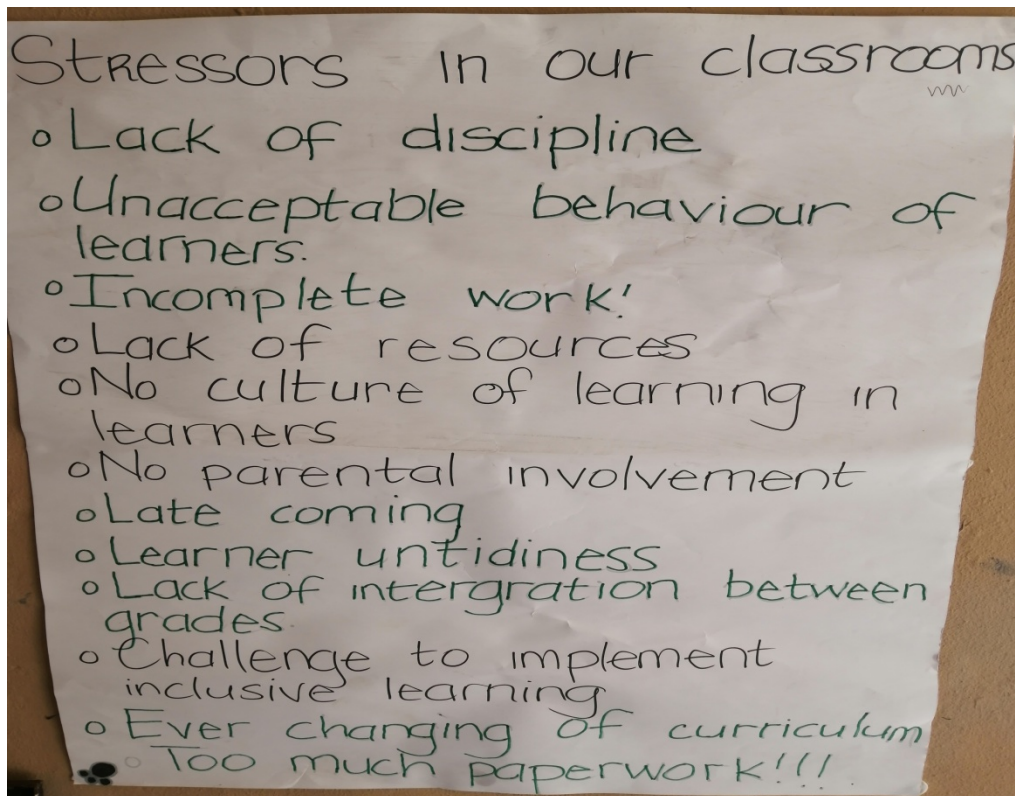 Stressors in our classrooms
o Lack of discipline
o Unacceptable behaviour of
learners.
o Incomplete work!
o Lack of resources
o No culture of learning in
learners
o No parental involvement
o Late coming
o Learner untidiness
o Lack of intergration between
grades.
o Challenge to implement
inclusive learning
o Ever changing of curriculum
o Too much paperwork!!!